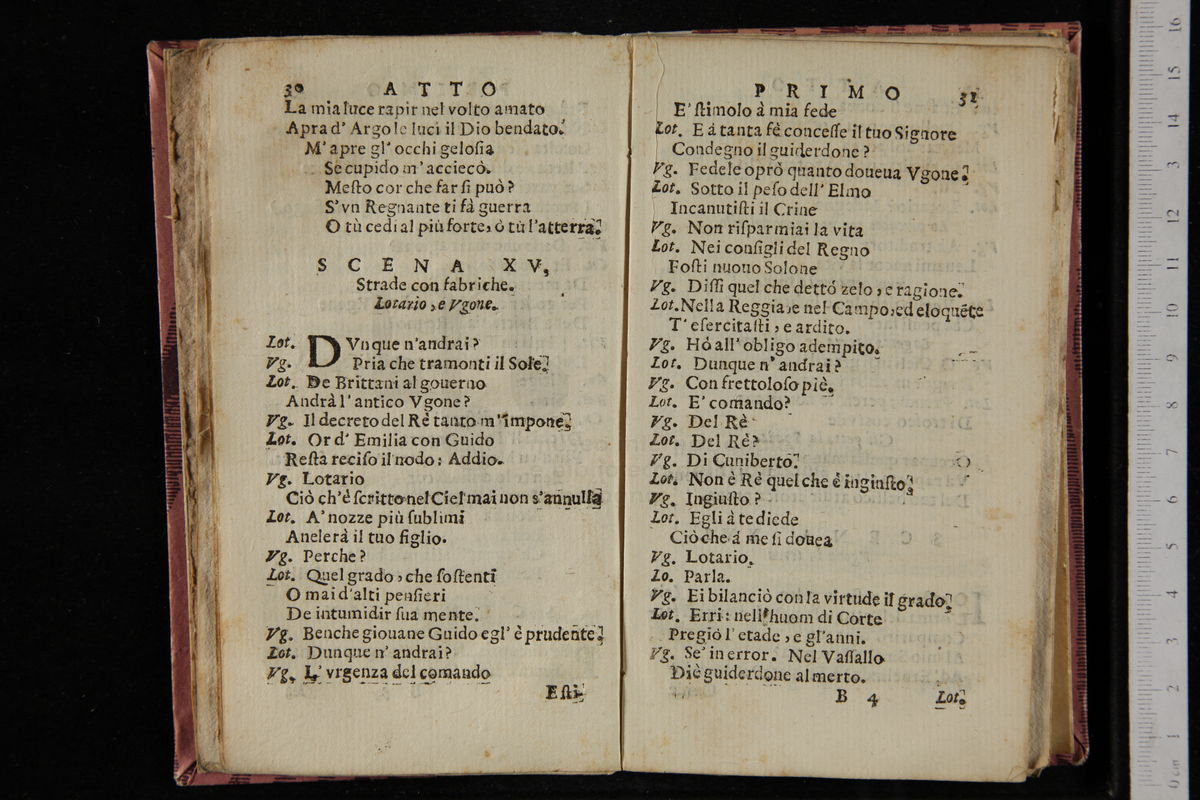 30 ATTO
La mia luce rapir nel volto amato
Apra d' Argo le luci il Dio bendato.
M' apre gl' occhi gelosia
Se cupido m' acciecò.
Mesto cor che far si può?
S' vn Regnante ti fà guerra
O tù cedi al più forte, ò tù l'atterra.
SCENA XV,
Strade con fabriche.
Lotario, e Vgone.
Lot. DVnque n'andrai?
Vg. Pria che tramonti il Sole.
Lot. De Brittani al gouerno
Andrà l' antico Vgone?
Vg. Il decreto del Rè tanto m'impone.
Lot. Or d' Emilia con Guido
Resta reciso il nodo: Addio.
Vg. Lotario
Ciò ch'è scritto nel Ciel mai non s'annulla
Lot. A' nozze più sublimi
Anelerà il tuo figlio.
Vg. Perche?
Lot. Quel grado, che sostenti
O mai d'alti pensieri
De intumidir sua mente.
Vg. Benche giouane Guido egl' è prudente.
Lot. Dunque n' andrai?
Vg. L' vrgenza del comando
Esti-
PRIMO 31
E' stimolo à mia fede
Lot. E á tanta fè concesse il tuo Signore
Condegno il guiderdone?
Vg. Fedele oprò quanto doueua Vgone.
Lot. Sotto il peso dell' Elmo
Incanutisti il Crine
Vg. Non risparmiai la vita
Lot. Nei consigli del Regno
Fosti nuouo Solone
Vg. Dissi quel che dettó zelo, e ragione.
Lot. Nella Reggia, e nel Campo, ed eloquẽte
T' esercitasti, e ardito.
Vg. Hò all' obligo adempito.
Lot. Dunque n' andrai?
Vg. Con frettoloso piè.
Lot. E' comando?
Vg. Del Rè
Lot. Del Rè?
Vg. Di Cuniberto.
Lot. Non è Rè quel che é ingiusto.
Vg. Ingiusto?
Lot. Egli à te diede
Ciò che á me si douea
Vg. Lotario.
Lo. Parla.
Vg. Ei bilanciò con la virtude il grado.
Lot. Erri: nell' huom di Corte
Pregiò l' etade, e gl'anni.
Vg. Se' in error. Nel Vassallo
Diè guiderdone al merto.
B 4 Lot.